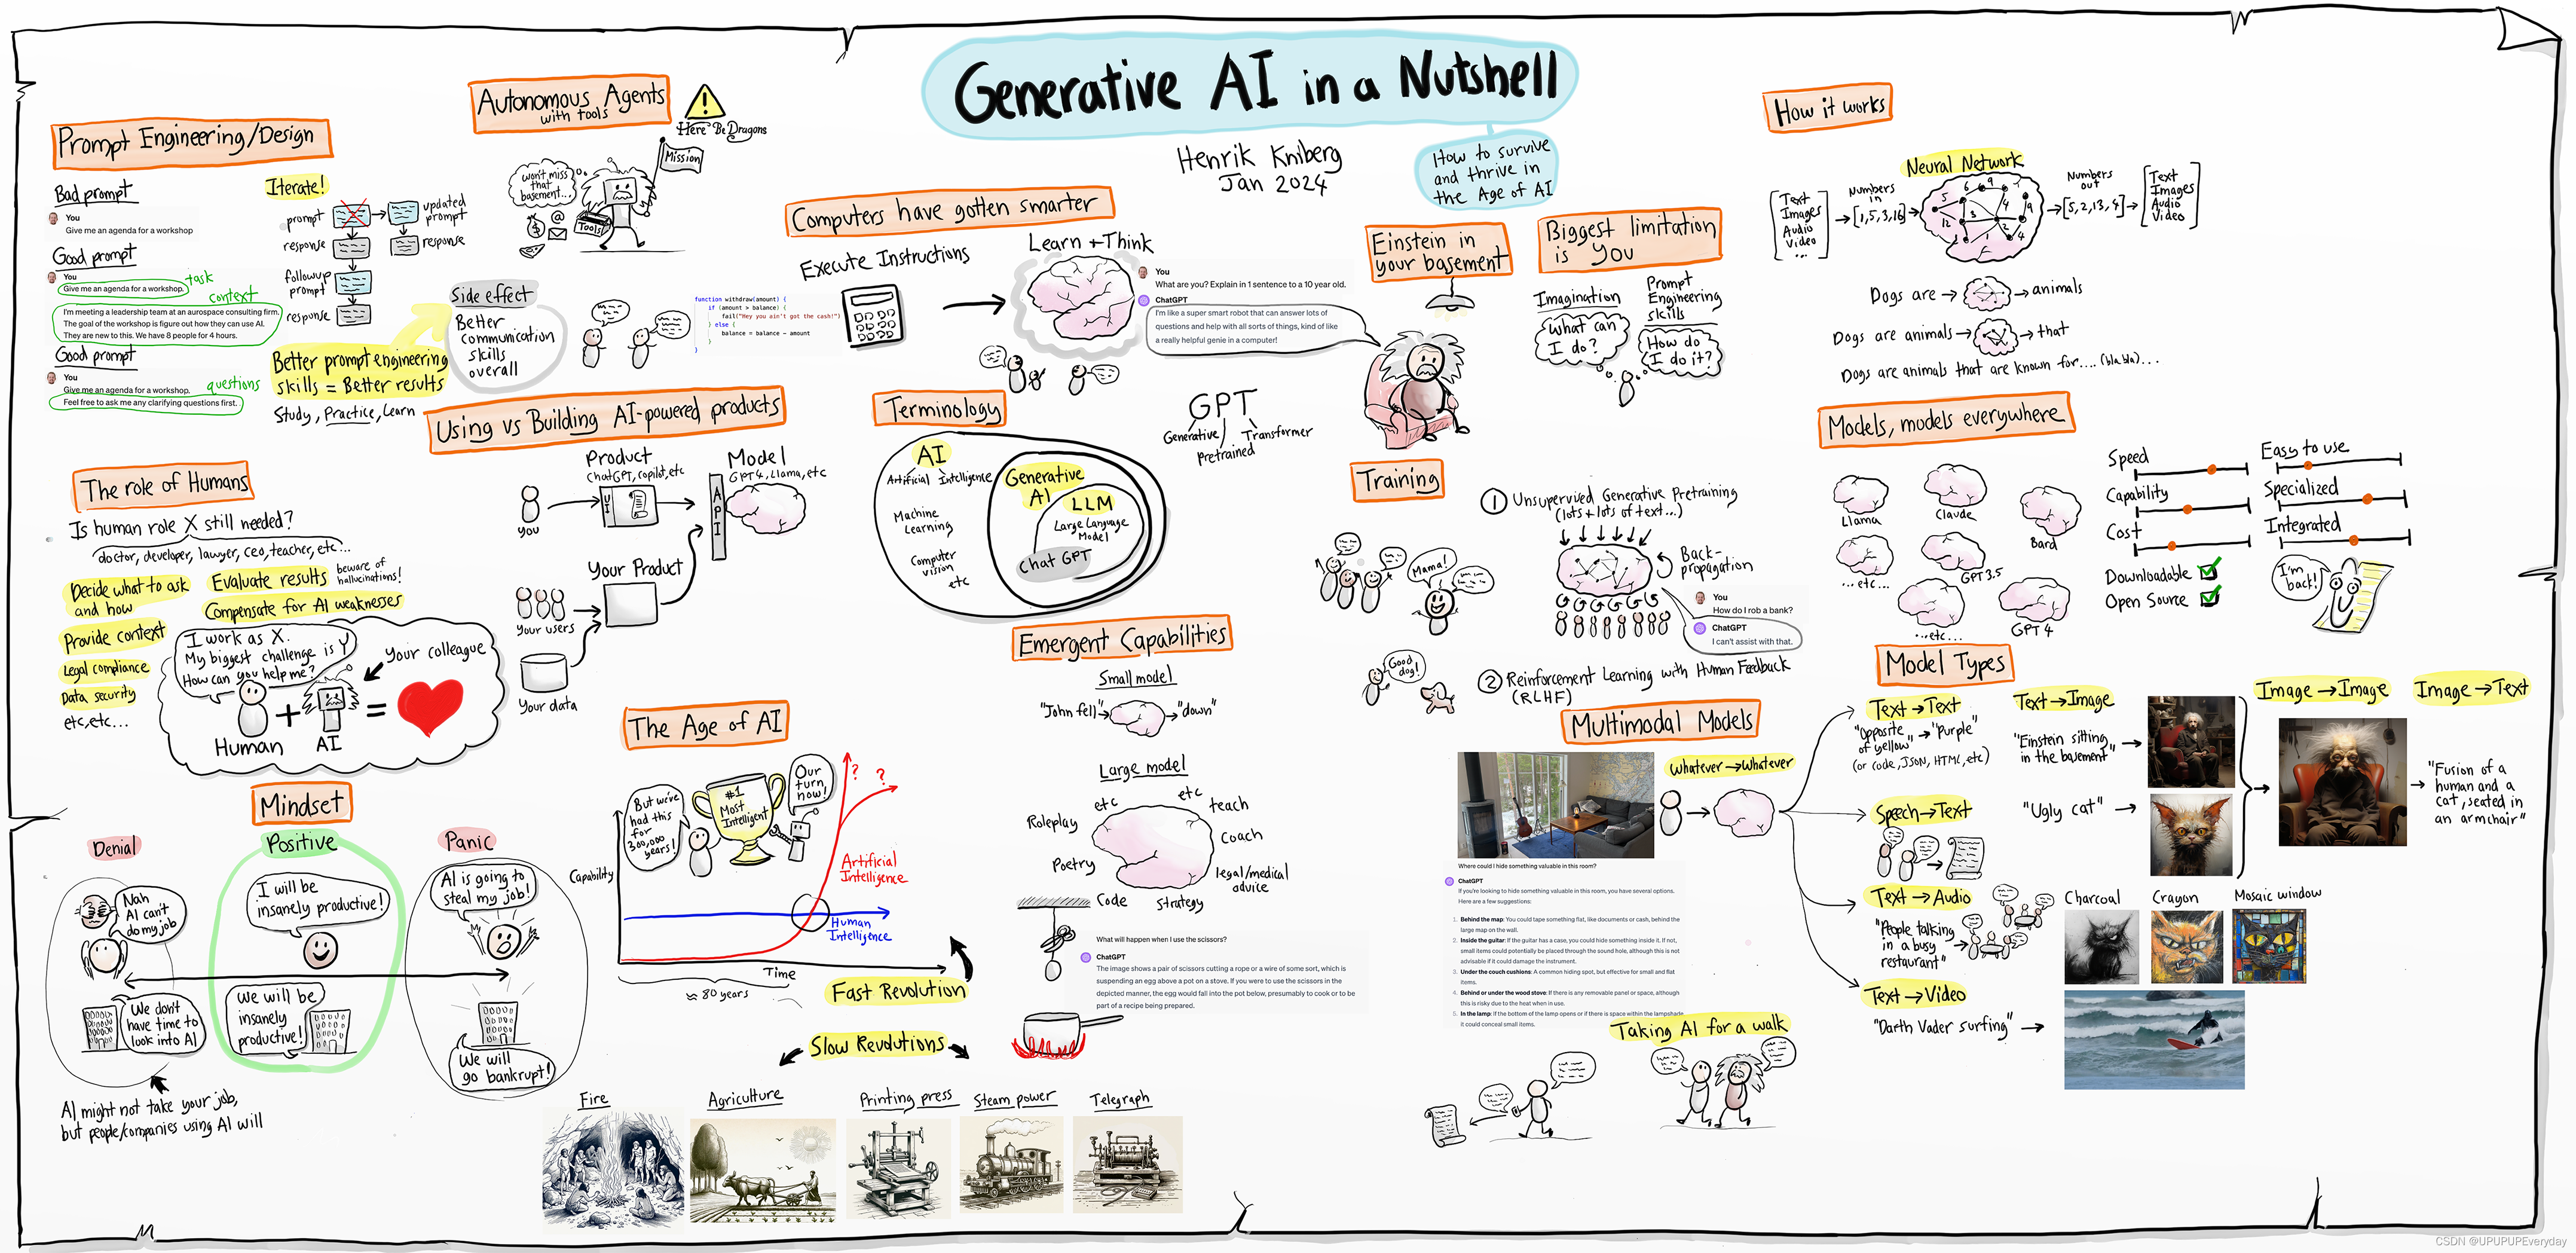 Generative AI in a Nutshell
How to survive
and thrive in
the Age of AI
Henrik Kniberg
Jan 2024
Prompt Engineering/Design
Bad prompt
You
Give me an agenda for a workshop
Good prompt
You
Give me an agenda for a workshop.
task
context
I'm meeting a leadership team at an aerospace consulting firm.
The goal of the workshop is figure out how they can use AI.
They are new to this. We have 8 people for 4 hours.
Good prompt
You
Give me an agenda for a workshop.
questions
Feel free to ask me any clarifying questions first.
Iterate!
prompt
updated
prompt
response
response
followup
prompt
response
Better prompt engineering
skills = Better results
Study, Practice, Learn
Side effect
Better
communication
skills
overall
Autonomous Agents
with tools
!
Here Be Dragons
Mission
Won't miss
that
basement...
$
@
Tools
Computers have gotten smarter
Execute Instructions
function withdraw(amount) {
if (amount > balance) {
fail("Hey you ain't got the cash!")
} else {
balance = balance - amount
}
}
Learn + Think
You
What are you? Explain in 1 sentence to a 10 year old.
ChatGPT
I'm like a super smart robot that can answer lots of
questions and help with all sorts of things, kind of like
a really helpful genie in a computer!
Einstein in
your basement
Biggest limitation
is You
Imagination
What can
I do?
Prompt
Engineering
skills
How do
I do it?
How it works
Neural Network
Text
Images
Audio
Video
...
Numbers
in
[1,5,3,16]
Numbers
out
[5,2,13,4]
Text
Images
Audio
Video
Dogs are → → animals
Dogs are animals → → that
Dogs are animals that are known for.... (bla bla)...
Using vs Building AI-powered products
Product
ChatGPT, copilot, etc
Model
GPT4, Llama, etc
You
UI
API
Your Product
Your users
Your data
Terminology
AI
Artificial Intelligence
Machine
Learning
Computer
vision
etc
Generative
AI
LLM
Large Language
Model
Chat GPT
GPT
Generative
Pretrained
Transformer
Training
1 Unsupervised Generative Pretraining
(lots + lots of text...)
Back-
propagation
Mama!
You
How do I rob a bank?
ChatGPT
I can't assist with that.
Good
dog!
2 Reinforcement Learning with Human Feedback
(RLHF)
Models, models everywhere
Llama
Claude
Bard
...etc...
GPT3.5
...etc...
GPT 4
Speed
Capability
Cost
Downloadable
Open Source
Easy to use
Specialized
Integrated
I'm
back!
The role of Humans
Is human role X still needed?
doctor, developer, lawyer, CEO, teacher, etc...
Decide what to ask
and how
Evaluate results
beware of
hallucinations!
Compensate for AI weaknesses
Provide context
Legal compliance
Data security
etc, etc...
I work as X.
My biggest challenge is Y
How can you help me?
Your colleague
Human
+
AI
=
Mindset
Denial
Positive
Panic
Nah
AI can't
do my job
I will be
insanely productive!
AI is going to
steal my job!
We don't
have time to
look into AI
We will be
insanely
productive!
We will
go bankrupt!
AI might not take your job,
but people/companies using AI will
The Age of AI
But we've
had this
for
300,000
years!
#1
Most
Intelligent
Our
turn
now!
? ?
Capability
Artificial
Intelligence
Human
Intelligence
Time
≈ 80 years
Fast Revolution
Slow Revolutions
Fire
Agriculture
Printing press
Steam power
Telegraph
Emergent Capabilities
Small model
"John fell" → → "down"
Large model
etc
etc
teach
Roleplay
Coach
Poetry
legal/medical
advice
Code
Strategy
What will happen when I use the scissors?
ChatGPT
The image shows a pair of scissors cutting a rope or a wire of some sort, which is
suspending an egg above a pot on a stove. If you were to use the scissors in the
depicted manner, the egg would fall into the pot below, presumably to cook or to be
part of a recipe being prepared.
Multimodal Models
Whatever → Whatever
Where could I hide something valuable in this room?
ChatGPT
If you're looking to hide something valuable in this room, you have several options.
Here are a few suggestions:
1. Behind the map: You could tape something flat, like documents or cash, behind the
large map on the wall.
2. Inside the guitar: If the guitar has a case, you could hide something inside it. If not,
small items could potentially be placed through the sound hole, although this is not
advisable if it could damage the instrument.
3. Under the couch cushions: A common hiding spot, but effective for small and flat
items.
4. Behind or under the wood stove: If there is any removable panel or space, although
this is risky due to the heat when in use.
5. In the lamp: If the bottom of the lamp opens or if there is space within the lampshade,
it could conceal small items.
Taking AI for a walk
Model Types
Text → Text
"Opposite
of yellow" → "Purple"
(or code, JSON, HTML, etc)
Text → Image
"Einstein sitting
in the basement"
"Ugly cat"
Image → Image
Image → Text
"Fusion of a
human and a
cat, seated in
an armchair"
Speech → Text
Text → Audio
"People talking
in a busy
restaurant"
Charcoal
Crayon
Mosaic window
Text → Video
"Darth Vader surfing"
CSDN @UPUPUPEveryday